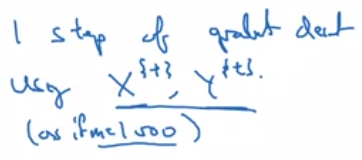 1 step of gradient descent
using X^{t}, Y^{t}.
(as if m=1000)